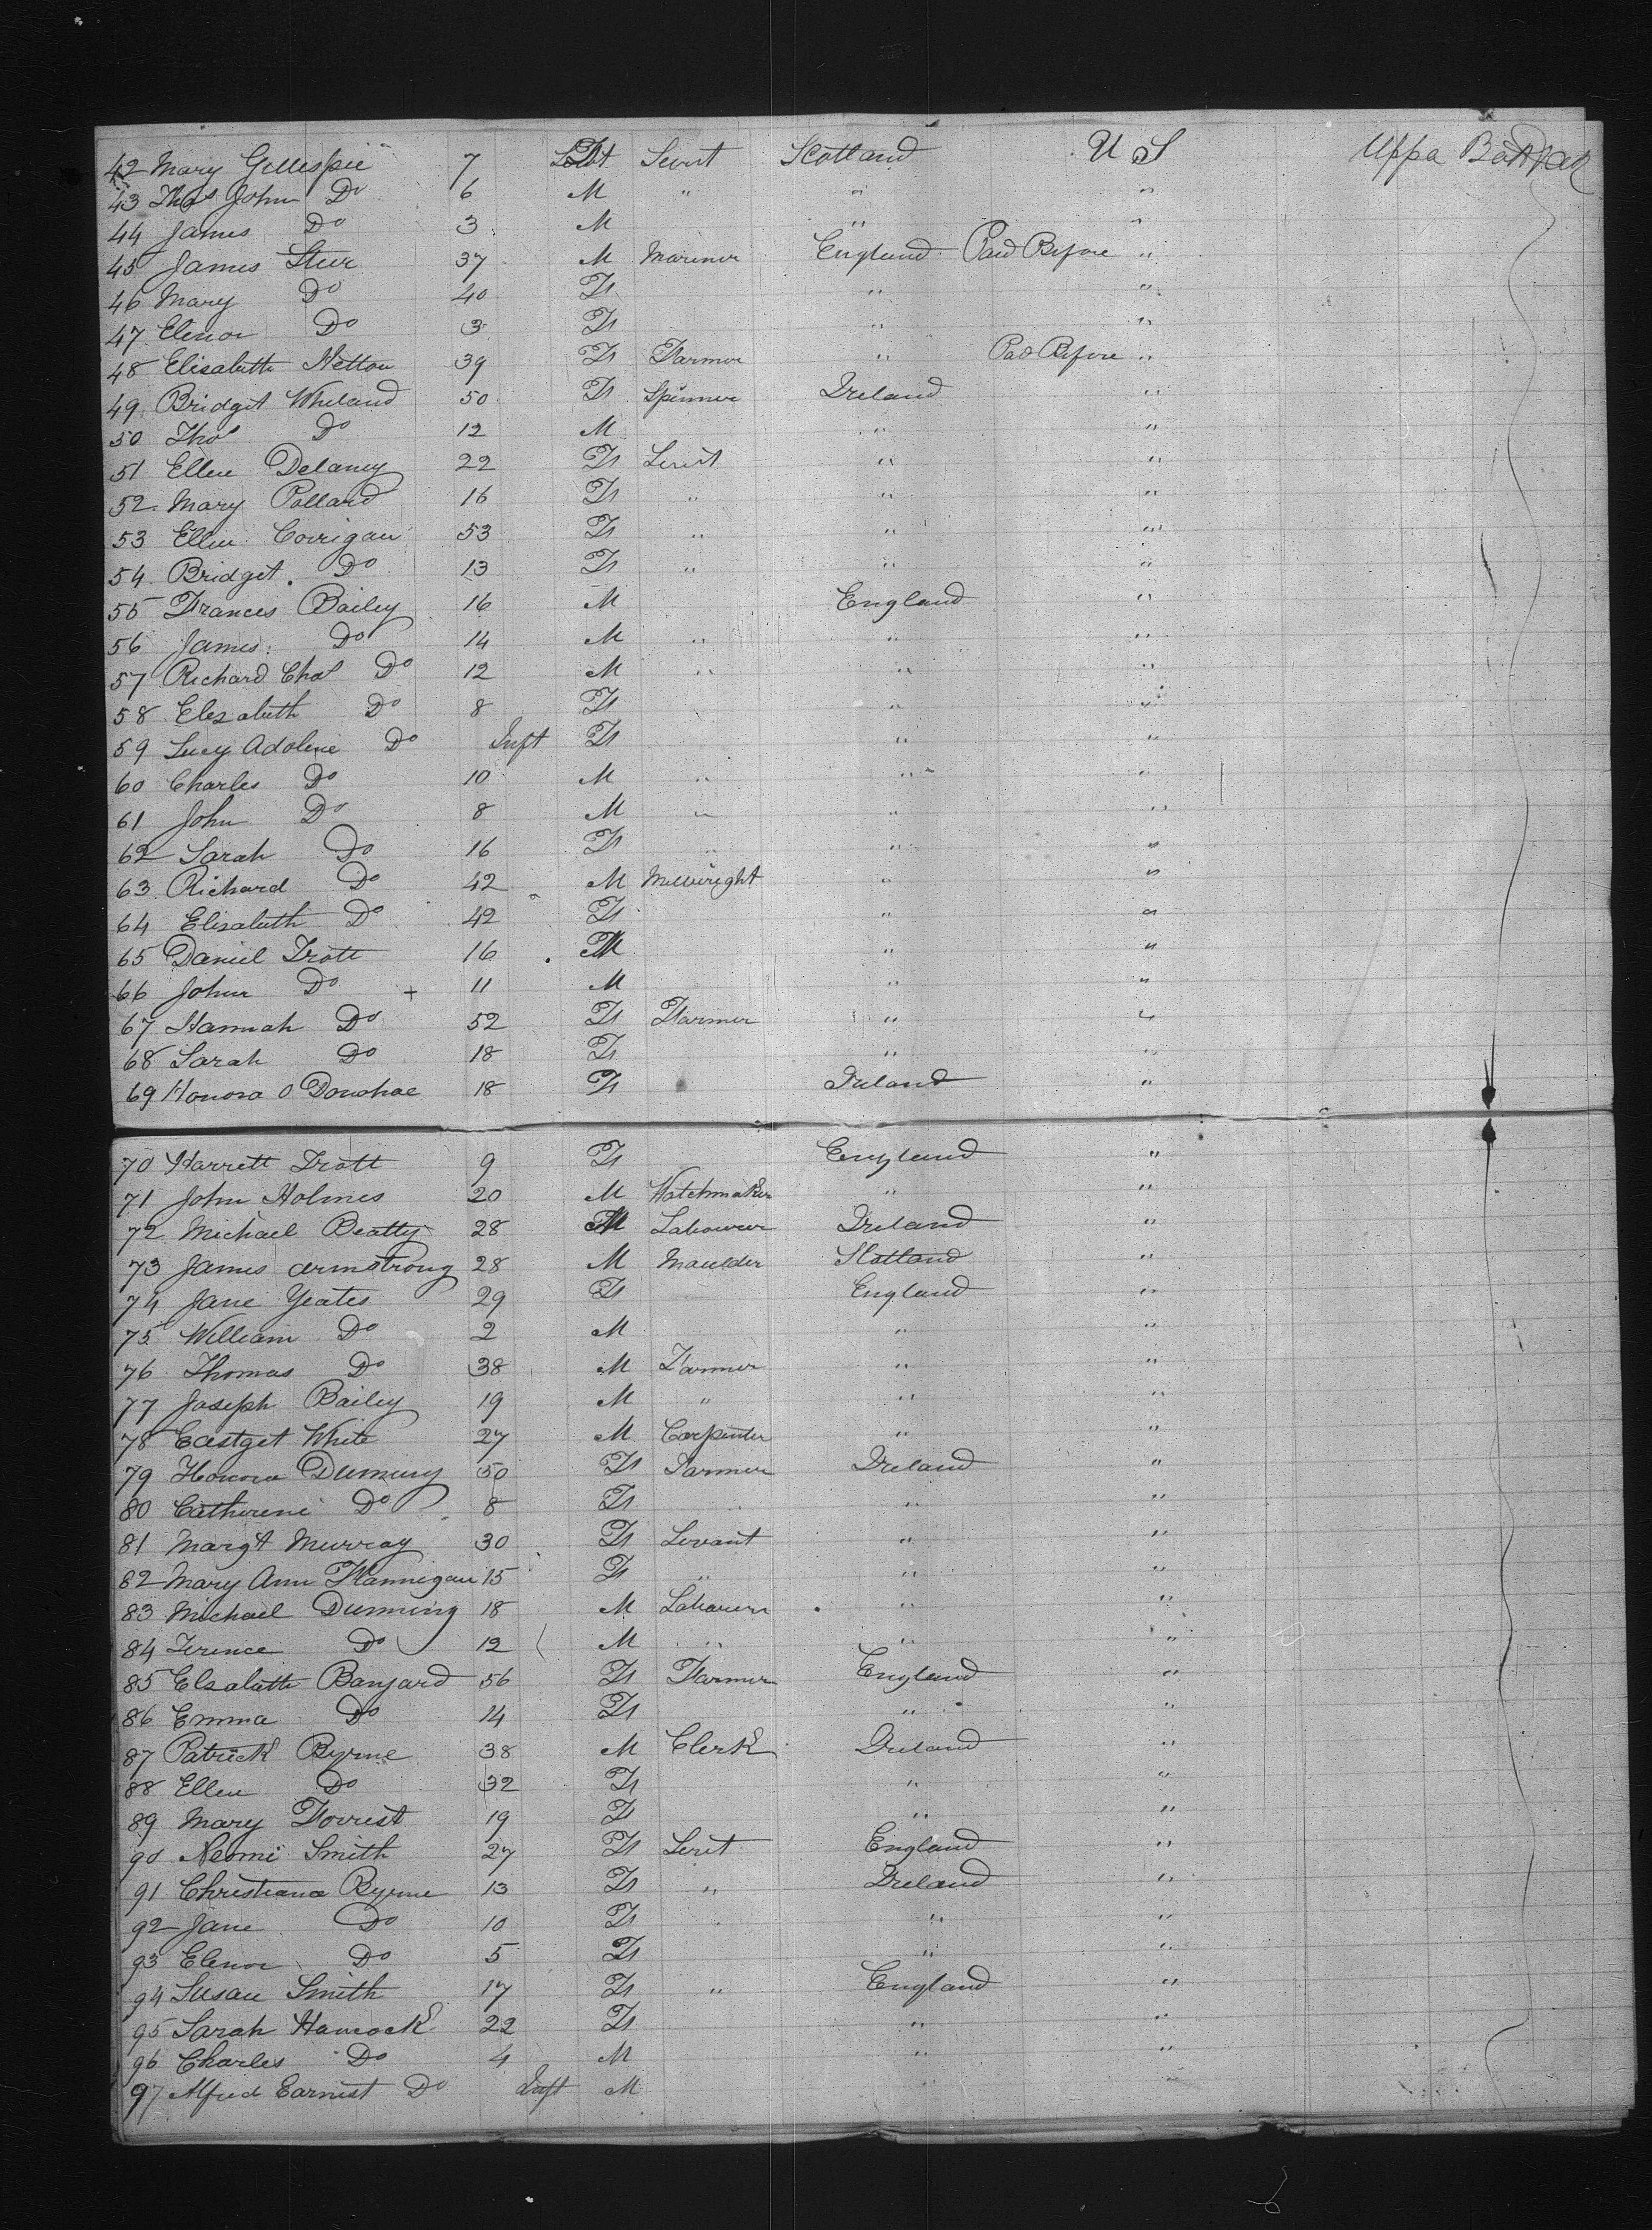 42 Mary Gillespie 7 F Servt Scotland U S Uppa
43 Thos John Do 6 M " " "
44 James Do 3 M " "
45 James Steer 37 M Mariner England Paid Before "
46 Mary Do 40 F " "
47 Elenor Do 3 F " "
48 Elisabeth Netton 39 F Farmer " Pad Before "
49 Bridget Wheland 50 F Spinner Ireland "
50 Thos Do 12 M " "
51 Ellen Delaney 22 F Servt " "
52 Mary Pollard 16 F " " "
53 Ellen Corrigan 53 F " " "
54 Bridget Do 13 F " " "
55 Frances Bailey 16 M England "
56 James Do 14 M " " "
57 Richard Chas Do 12 M " " "
58 Elezabeth Do 8 F " "
59 Lucy Adoline Do Inft F " "
60 Charles Do 10 M " " "
61 John Do 8 M " " "
62 Sarah Do 16 F " " "
63 Richard Do 42 M Millwright " "
64 Elisabeth Do 42 F " "
65 Daniel Trott 16 M " "
66 John Do + 11 M " "
67 Hannah Do 52 F Farmer " "
68 Sarah Do 18 F " "
69 Honora O Donohoe 18 F Ireland "
70 Harrett Trott 9 F England "
71 John Holmes 20 M Watchmaker " "
72 Michael Beatty 28 M Labourer Ireland "
73 James Armstrong 28 M Maulder Scotland "
74 Jane Yeates 29 F England "
75 William Do 2 M " "
76 Thomas Do 38 M Farmer " "
77 Joseph Bailey 19 M " " "
78 Eastget White 27 M Carpenter " "
79 Honora 50 F Farmer Ireland "
80 Catherine Do 8 F " " "
81 Margt Murray 30 F Servant " "
82 Mary Ann Flannigan 15 F " " "
83 Michael Dunning 18 M Labourer " "
84 Terence Do 12 M " " "
85 Elsabeth Banyard 56 F Farmer England "
86 Emma Do 14 F " "
87 Patrick Byrne 38 M Clerk Ireland "
88 Ellen Do 32 F " "
89 Mary Forrest 19 F " "
90 Neomi Smith 27 F Servt England "
91 Christiana Byrne 13 F " Ireland "
92 Jane Do 10 F " "
93 Elenor Do 5 F " "
94 Susan Smith 17 F " England "
95 Sarah Hancock 22 F " "
96 Charles Do 4 M " "
97 Alfred Earnest Do Inft M " "